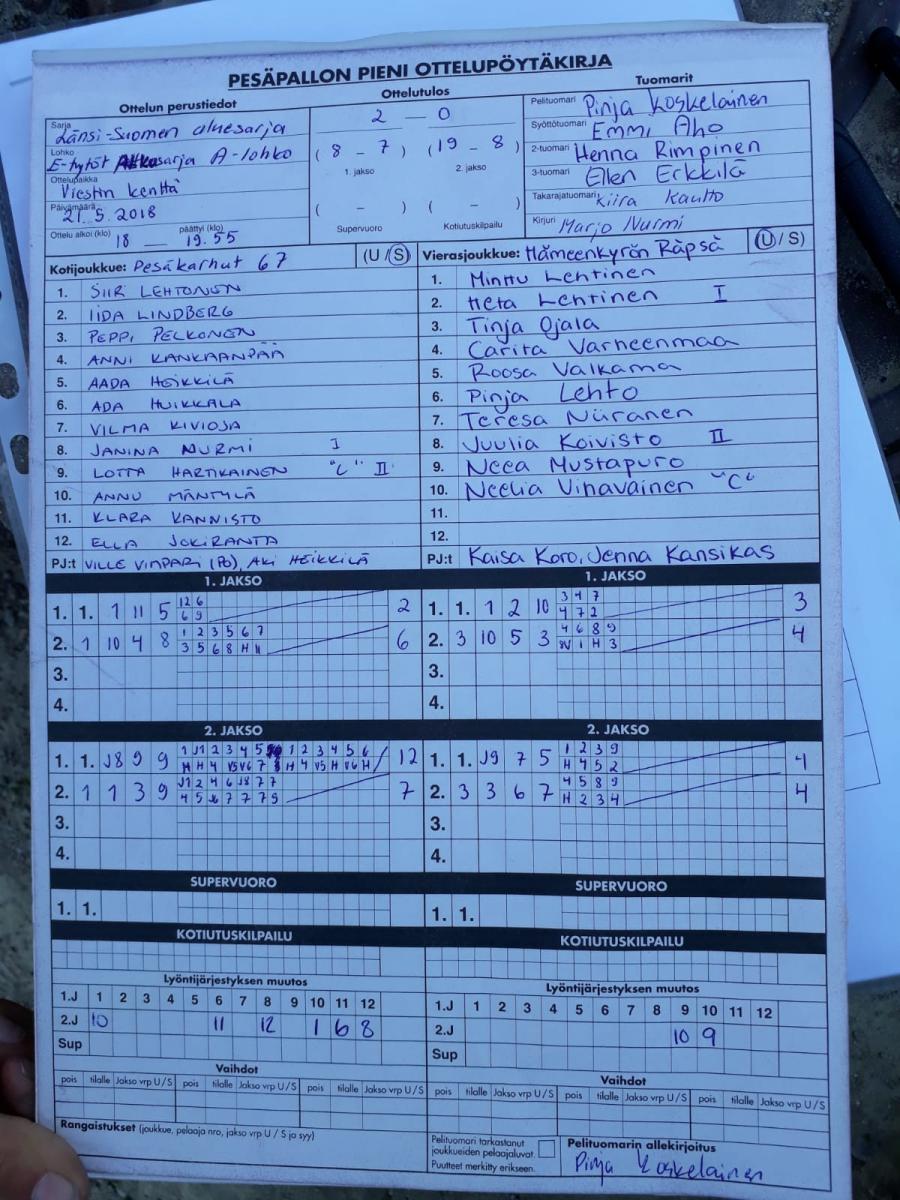 PESÄPALLON PIENI OTTELUPÖYTÄKIRJA
Ottelun perustiedot
Sarja Länsi-Suomen aluesarja
Lohko E-tytöt Alkusarja A-lohko
Ottelupaikka Viestin kenttä
Päivämäärä 21.5.2018
Ottelu alkoi (klo) 18 — päättyi (klo) 19.55
Ottelutulos
2 — 0
(8 - 7) (19 - 8)
1. jakso 2. jakso
( - ) ( - )
Supervuoro Kotiutuskilpailu
Tuomarit
Pelituomari Pinja Koskelainen
Syöttötuomari Emmi Aho
2-tuomari Henna Rimpinen
3-tuomari Ellen Erkkilä
Takarajatuomari Kiira Kautto
Kirjuri Marjo Nurmi
Kotijoukkue: Pesäkarhut 67 (U / S)
1. SIIRI LEHTONEN
2. IIDA LINDBERG
3. PEPPI PELKONEN
4. ANNI KANKAANPÄÄ
5. AADA HEIKKILÄ
6. ADA HUIKKALA
7. VILMA KIVIOJA
8. JANINA NURMI I
9. LOTTA HARTIKAINEN "C" II
10. ANNU MÄNTYLÄ
11. KLARA KANNISTO
12. ELLA JOKIRANTA
PJ:t VILLE VIMPARI (PJ), AKI HEIKKILÄ
Vierasjoukkue: Hämeenkyrön Räpsä (U / S)
1. Minttu Lehtinen
2. Heta Lehtinen I
3. Tinja Ojala
4. Carita Varheenmaa
5. Roosa Valkama
6. Pinja Lehto
7. Teresa Niiranen
8. Juulia Koivisto II
9. Neea Mustapuro
10. Neelia Vihavainen "C"
11.
12.
PJ:t Kaisa Koro, Jenna Kansikas
1. JAKSO
1. 1. 1 11 5 12 6 2
6 9
2. 1 10 4 8 1 2 3 5 6 7 6
3 5 6 8 H 11
3.
4.
1. JAKSO
1. 1. 1 2 10 3 4 7 3
4 7 2
2. 3 10 5 3 4 6 8 9 4
1 H 3
3.
4.
2. JAKSO
1. 1. J8 9 9 1 J1 2 3 4 5 1 2 3 4 5 6 12
H H 4 V5 V6 7 8 H 4 V5 H V6 H
2. 1 1 3 9 J1 2 4 6 J8 7 7 7
4 5 J6 7 7 7 9
3.
4.
2. JAKSO
1. 1. J9 7 5 1 2 3 9 4
H 4 5 2
2. 3 3 6 7 4 5 8 9 4
H 2 3 4
3.
4.
SUPERVUORO
1. 1.
SUPERVUORO
1. 1.
KOTIUTUSKILPAILU
KOTIUTUSKILPAILU
Lyöntijärjestyksen muutos
1.J 1 2 3 4 5 6 7 8 9 10 11 12
2.J 10 11 12 1 6 8
Sup
Lyöntijärjestyksen muutos
1.J 1 2 3 4 5 6 7 8 9 10 11 12
2.J 10 9
Sup
Vaihdot
pois tilalle Jakso vrp U / S pois tilalle Jakso vrp U / S pois tilalle Jakso vrp U / S
Vaihdot
pois tilalle Jakso vrp U / S pois tilalle Jakso vrp U / S pois tilalle Jakso vrp U / S
Rangaistukset (joukkue, pelaaja nro, jakso vrp U / S ja syy)
Pelituomari tarkastanut
joukkueiden pelaajaluvat.
Puutteet merkitty erikseen.
Pelituomarin allekirjoitus
Pinja Koskelainen